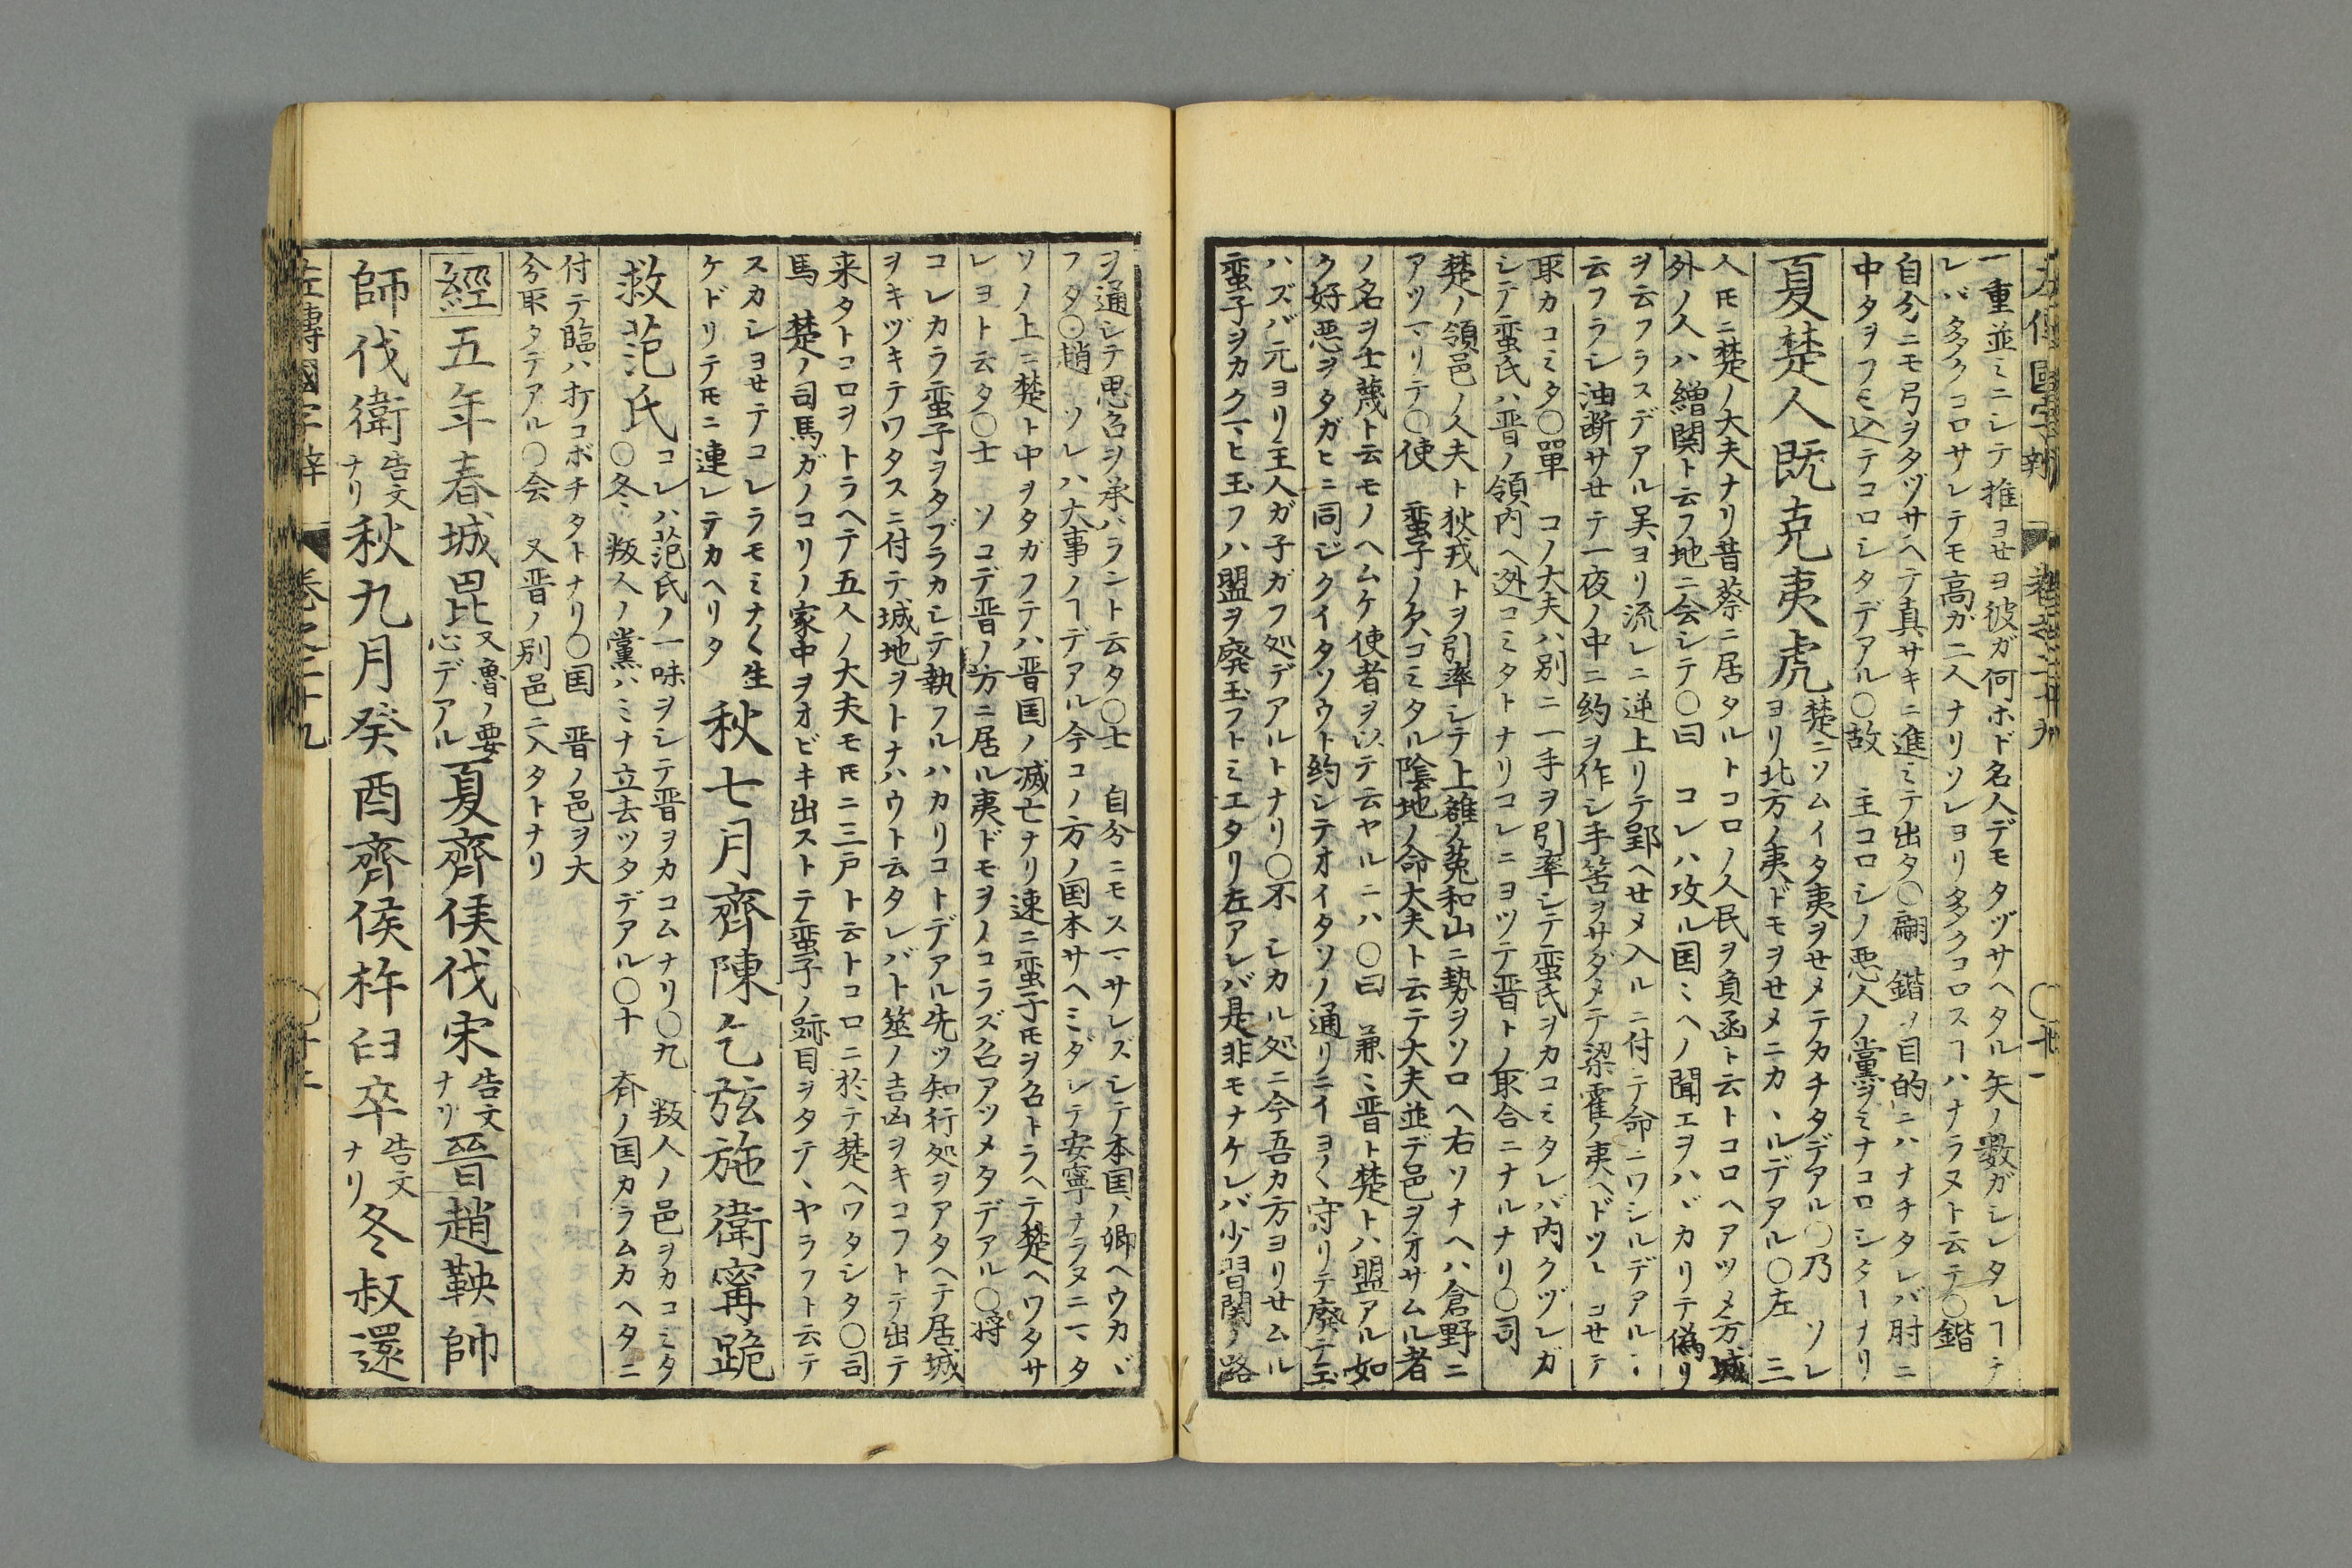 左傳國字辯 卷之二十九 ○廿一
一重並ミニシテ推ヨセヨ彼ガ何ホド名人デモタヅサヘタル矢ノ數ガシレタレヿテ
レバ多クコロサレテモ高ガ二人ナリソレヨリ多クコロスヿハナラヌト云テ○鍇
自分ニモ弓ヲタヅサヘテ真サキニ進ミテ出タ○翩 鍇ヲ目的ニハナチタレバ肘ニ
中タヲフミ込テコロシタデアル○故 主コロシノ悪人ノ黨ヲミナコロシタヿナリ
夏楚人既克夷虎
楚ニソムイタ夷ヲせメテカチタデアル○乃 ソレ
ヨリ北方ノ夷ドモヲせメニカヽルデアル○左 三
人𪜈ニ楚ノ大夫ナリ昔蔡ニ居タルトコロノ人民ヲ負函ト云トコロヘアツメ方城
外ノ人ハ繒関ト云フ地ニ会シテ○曰 コレハ攻ル国ミヘノ聞エヲハヾカリテ偽リ
ヲ云フラスデアル吴ヨリ流レニ逆上リテ郢ヘせメ入ルニ付テ命ニワシルデアルヽ
云フラシ油断サせテ一夜ノ中ニ約ヲ作シ手筈ヲサダメテ梁霍ノ夷ヘドツトコせテ
取カコミタ○單 コノ大夫ハ別ニ一手ヲ引率シテ蛮氏ヲカコミタレバ内クヅレガ
シテ蛮氏ハ晋ノ領内ヘ迯コミタトナリコレニヨツテ晋トノ取合ニナルナリ○司
楚ノ領邑ノ人夫ト狄戎トヲ引率シテ上雒ノ菟和山ニ勢ヲソロヘ右ソナヘハ倉野ニ
アツマリテ○使 蛮子ノ欠コミタル陰地ノ命大夫ト云テ大夫並デ邑ヲオサムル者
ノ名ヲ士蔑ト云モノヘムケ使者ヲ以テ云ヤルニハ○曰 兼ミ晋ト楚トハ盟アル如
ク好悪ヲタガヒニ同ジクイタソウト約シテオイタソノ通リニイヨ〱守リテ廃テ玉
ハズバ元ヨリ主人ガ子ガフ処デアルトナリ○不 シカル処ニ今吾カ方ヨリせムル
蛮子ヲカクマヒ玉フハ盟ヲ廃玉フトミエタリ左アレバ是非モナケレバ少習関ノ路
ヲ通シテ思召ヲ承ハラント云タ○士 自分ニモスマサレズシテ本国ノ卿ヘウカヾ
フタ○趙 ソレハ大事ノヿデアル今コノ方ノ国本サヘミダレテ安寧ナラヌニマタ
ソノ上ニ楚ト中ヲタガフテハ晋国ノ滅亡ナリ速ニ蛮子𪜈ヲ召トラヘテ楚ヘワタサ
レヨト云タ○士 ソコデ晋ノ方ニ居ル夷ドモヲノコラズ召アツメタデアル○将
コレカラ蛮子ヲタブラカシテ執フルハカリコトデアル先ツ知行処ヲアタヘテ居城
ヲキヅキテワタスニ付テ城地ヲトナハウト云タレバト筮ノ吉凶ヲキコフトテ出テ
来タトコロヲトラヘテ五人ノ大夫モ𪜈ニ三戸ト云トコロニ於テ楚ヘワタシタ○司
馬 楚ノ司馬ガノコリノ家中ヲオビキ出ストテ蛮子ノ跡目ヲタテヽヤラフト云テ
スカシヨせテコレラモミナ〱生
ケドリテ𪜈ニ連レテカヘリタ
秋七月齊陳乞弦施衛甯跪
救范氏
コレハ范氏ノ一味ヲシテ晋ヲカコムナリ○九 叛人ノ邑ヲカコミタ
○冬ミ 叛人ノ黨ハミナ立去ツタデアル○十 斉ノ国カラムカヘタニ
付テ臨ハ打コボチタトナリ○国 晋ノ邑ヲ大
分取タテアル○会 又晋ノ別邑ニ入タトナリ
經五年春城毘 又魯ノ要心デアル 夏齊侯伐宋 告文ナリ 晉趙鞅帥
師伐衛 告文ナリ 秋九月癸酉齊侯杵臼卒 告文ナリ 冬叔還
左傳國字辯 卷之二十九